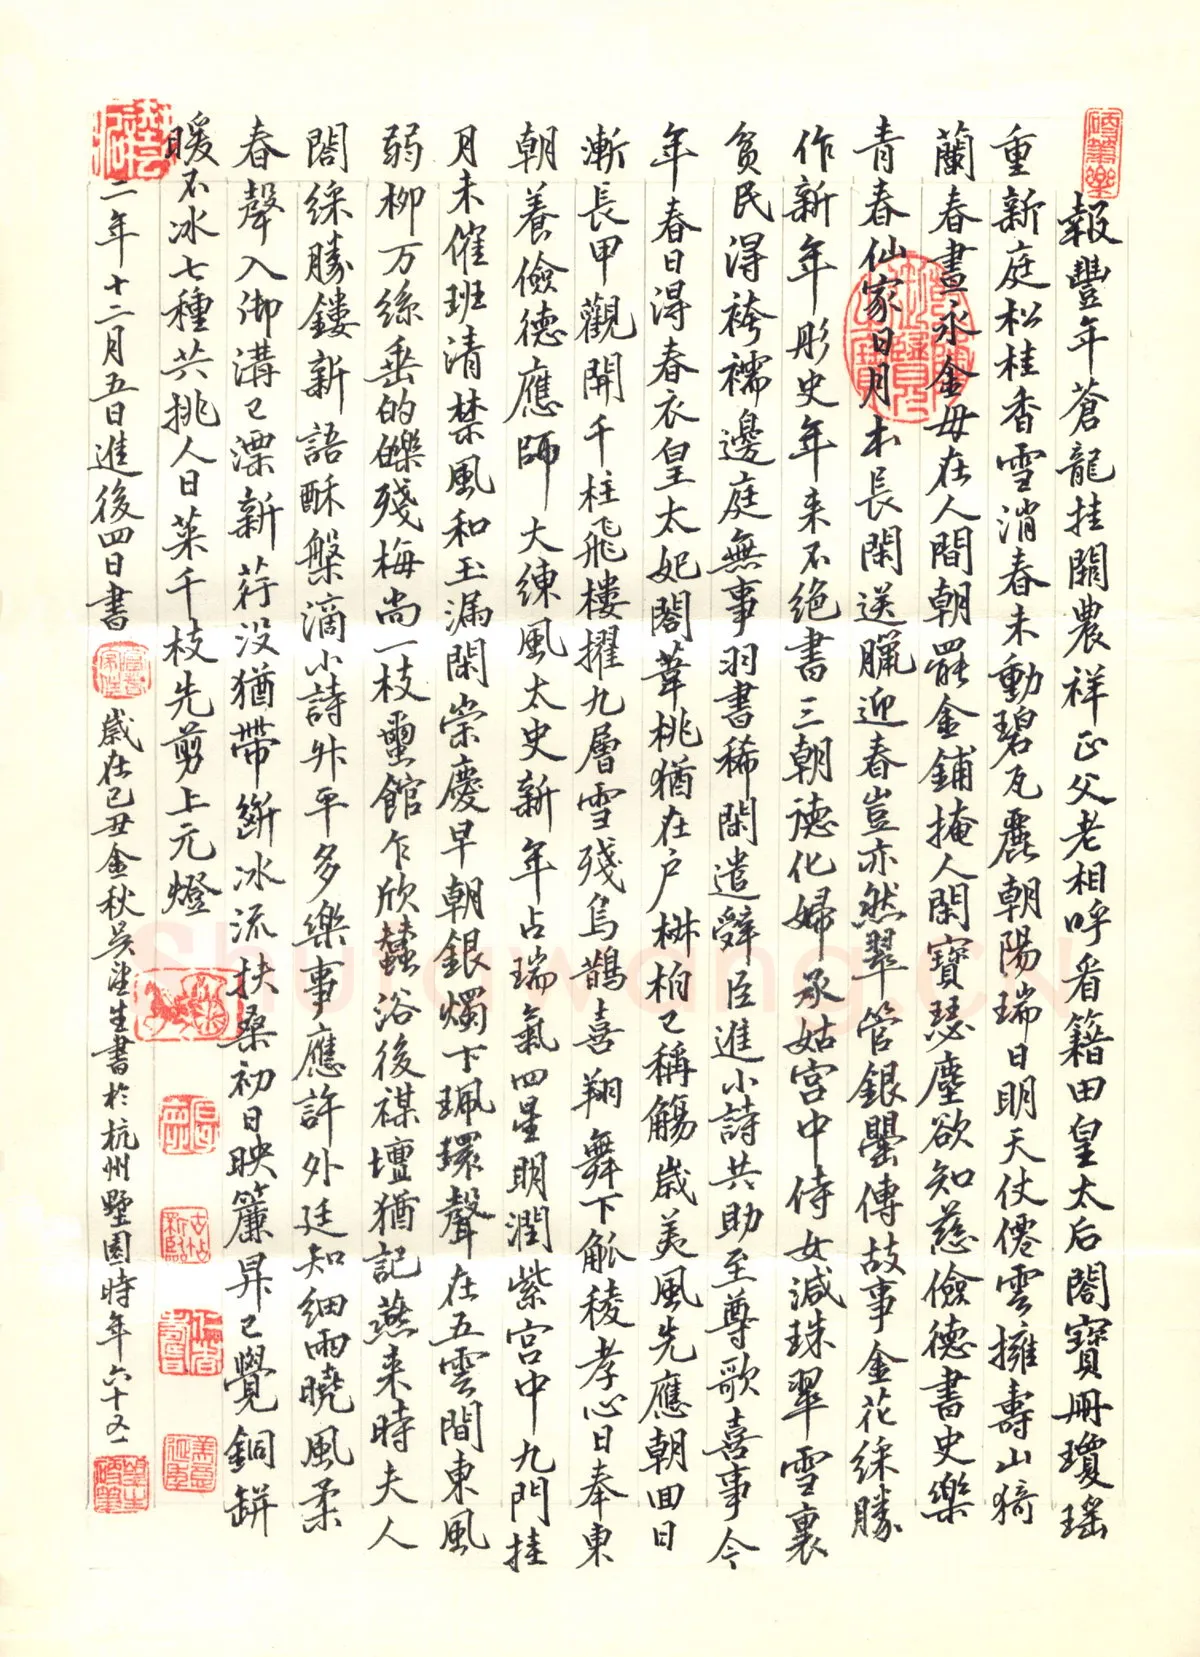 報豐年蒼龍挂闕農祥正父老相呼看籍田皇太后閣寶冊瓊瑶
重新庭松桂香雪消春未動碧瓦麗朝陽瑞日明天仗僊雲擁壽山猗
蘭春晝永金母在人間朝罷金鋪掩人閑寶瑟塵欲知慈儉德書史樂
青春仙家日月本長閑送臘迎春豈亦然翠管銀罌傳故事金花綵勝
作新年彤史年来不絕書三朝德化婦承姑宫中侍女減珠翠雪裏
貧民得袴襦邊庭無事羽書稀閑遣舜臣進小詩共助至尊歌喜事今
年春日得春衣皇太妃閣葦桃猶在户椒柏已稱觴歲美風先應朝回日
漸長甲觀開千柱飛樓擢九層雪殘烏鵲喜翔舞下觚稜孝心日奉東
朝養儉德應師大練風太史新年占瑞氣四星明潤紫宫中九門挂
月未催班清禁風和玉漏閑崇慶早朝銀燭下珮環聲在五雲間東風
弱柳万絲垂的皪殘梅尚一枝璽館乍欣蠶浴後禖壇猶記燕来時夫人
閣綵勝鏤新語酥槃滴小詩升平多樂事應許外廷知細雨曉風柔
春聲入御溝已漂新荇没猶帶斷冰流扶桑初日映簾昇已覺銅缾
暖不冰七種共挑人日菜千枝先剪上元燈
二年十二月五日進後四日書
歲在己丑金秋吴望生書於杭州墅園時年六十又一
Shufawang.CN